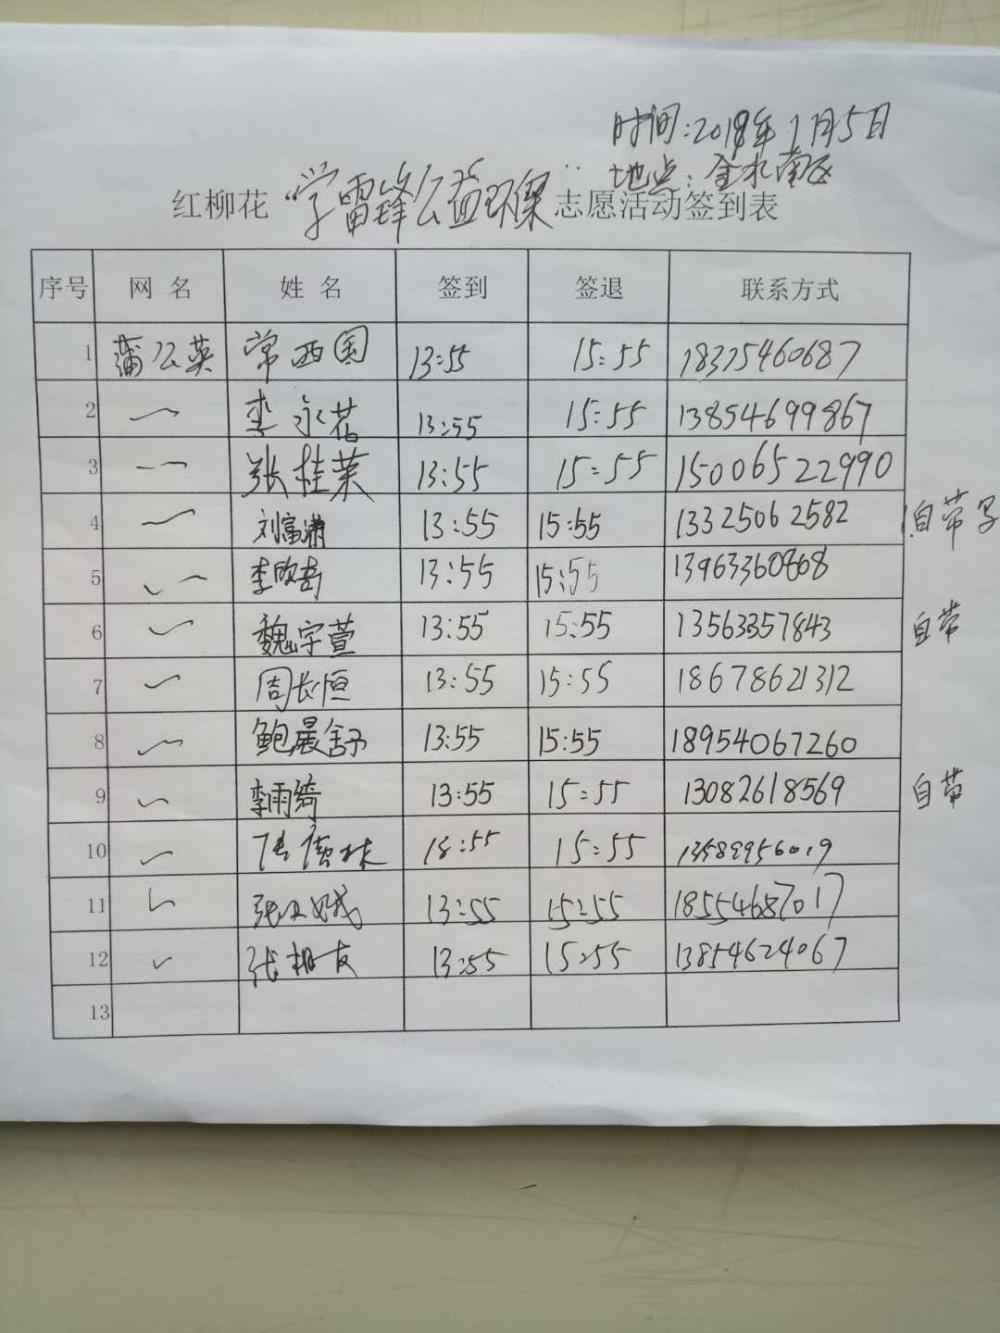 时间:2018年1月5日
地点:金水南区
红柳花“学雷锋公益环保”志愿活动签到表
序号 网名 姓名 签到 签退 联系方式
1 蒲公英 常西国 13:55 15:55 18375460687
2 李永花 13:55 15:55 13854699867
3 张桂英 13:55 15:55 15006522990
4 刘富满 13:55 15:55 13325062582 自带
5 李欣 13:55 15:55 13963360868
6 魏宇萱 13:55 15:55 13563357843 自带
7 周长恒 13:55 15:55 18678621312
8 鲍晨舒 13:55 15:55 18954067260
9 李雨绮 13:55 15:55 13082618569 自带
10 15:55 13589956019
11 13:55 15:55 18554687017
12 张相友 13:55 15:55 13854624067
13